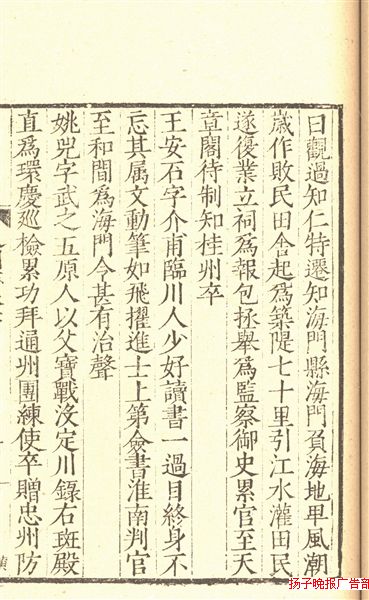 曰觀過知仁特遷知海門縣海門負海地甲風潮
歲作敗民田舍起為築隄七十里引江水灌田民
遂復業立祠為報包拯舉為監察御史累官至天
章閣待制知桂州卒
王安石字介甫臨川人少好讀書一過目終身不
忘其屬文動筆如飛擢進士上第僉書淮南判官
至和間為海門令甚有治聲
姚兕字武之五原人以父寶戰沒定川錄右班殿
直為環慶巡檢累功拜通州團練使卒贈忠州防
扬子晚报广告部